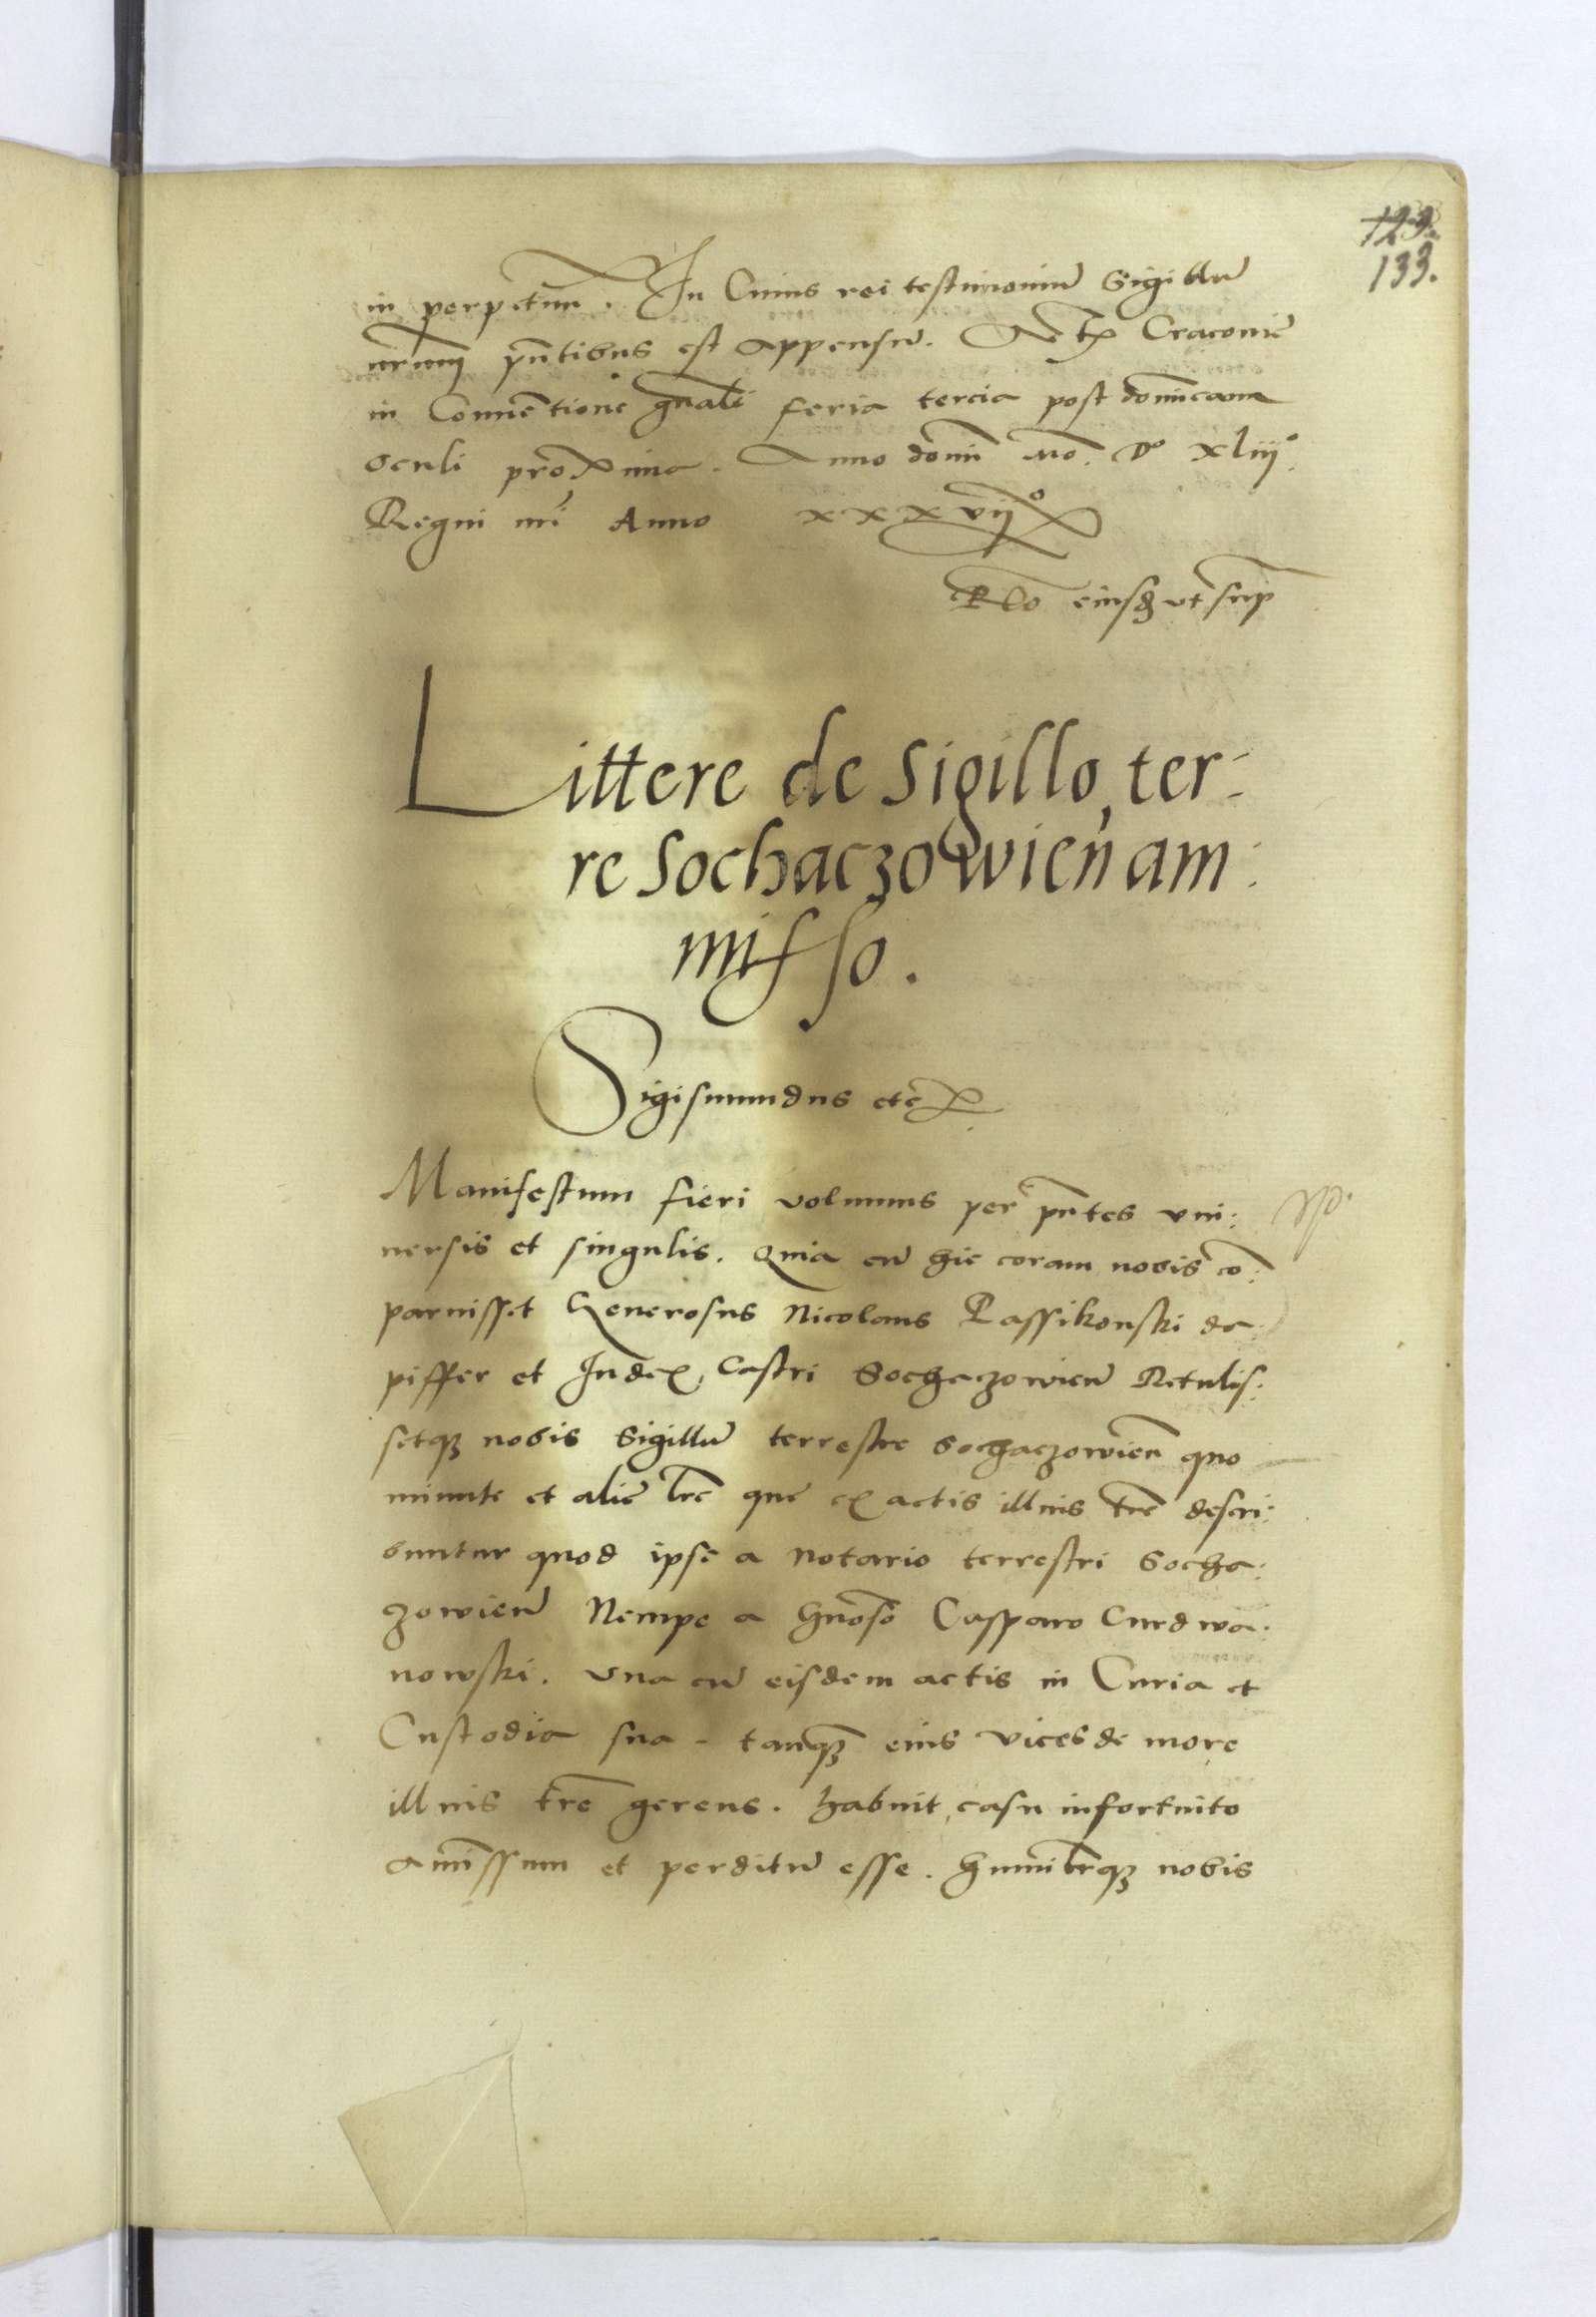 123.
133.
in perpetuũ. In Cuius rei testimoniũ Sigillũ
nrum pñtibus est appensũ. Actũ Cracouie
in Conuẽtione gñali feria tercia post domĩcam
oculi proxima. Anno domĩ Mo. Do xliijo.
Regni nrĩ Anno xxxvijo
Rlo eiusdẽ vt sup
Littere de Sigillo ter:
re Sochaczowieñ am:
misso.
Sigismundus etc̃
Manifestum fieri volumus per pñtes vni:
uersis et singulis. Quia cũ hic coram nobis cõ:
paruisset Generosus Nicolaus Passikonski da:
piffer et Iudex Castri Sochaczowieñ Retulis:
setqʒ nobis Sigillũ terrestre Sochaczowieñ quo
minute et alie lr̃e que ex actis illius tr̃e descri:
buntur quod ipse a Notario terrestri Socha:
zowieñ Nempe a Gñoso Casparo Curdwa:
nowski. Vna cũ eisdem actis in Curia et
Custodia sua - tanqʒ eius vices de more
illius tr̃e gerens. habuit, casu infortuito
amissum et perditũ esse. humilr̃qʒ nobis